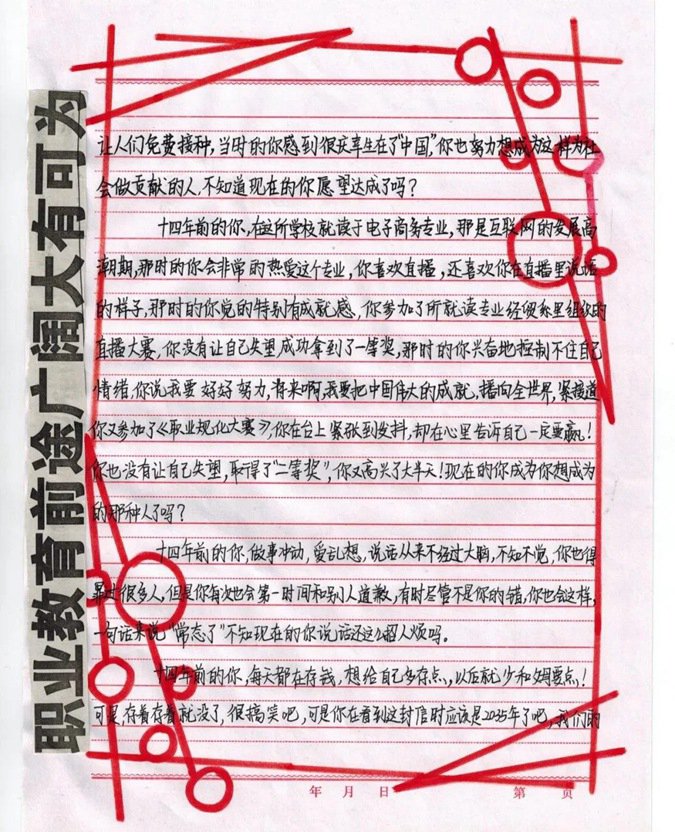 职业教育前途广阔大有可为
让人们免费接种,当时的你感到很庆幸生在了“中国,”你也努力想成为这样为社
会做贡献的人,不知道现在的你愿望达成了吗?
十四年前的你,在这所学校就读于电子商务专业,那是互联网的发展高
潮期,那时的你会非常的热爱这个专业,你喜欢直播,还喜欢你在直播里说话
的样子,那时的你觉的特别有成就感,你参加了所就读专业经贸系里组织的
直播大赛,你没有让自己失望成功拿到了一等奖,那时的你兴奋地控制不住自己
情绪,你说我要好好努力,将来啊,我要把中国伟大的成就,播向全世界,紧接道
你又参加了《职业规化大赛》,你在台上紧张到发抖,却在心里告诉自己一定要赢!
你也没有让自己失望,取得了“二等奖”,你又高兴了大半天!现在的你成为你想成为
的那种人了吗?
十四年前的你,做事冲动,爱乱想,说话从来不经过大脑,不知不觉,你也得
罪过很多人,但是你每次也会第一时间和别人道歉,有时尽管不是你的错,你也会这样,
一句话来说“常态了”不知现在的你说话还这么招人烦吗。
十四年前的你,每天都在存钱,想给自己多存点,以后就少和妈要点!
可是,存着存着就没了,很搞笑吧,可是你在看到这封信时应该是2035年了吧,我们的
年 月 日 第 页